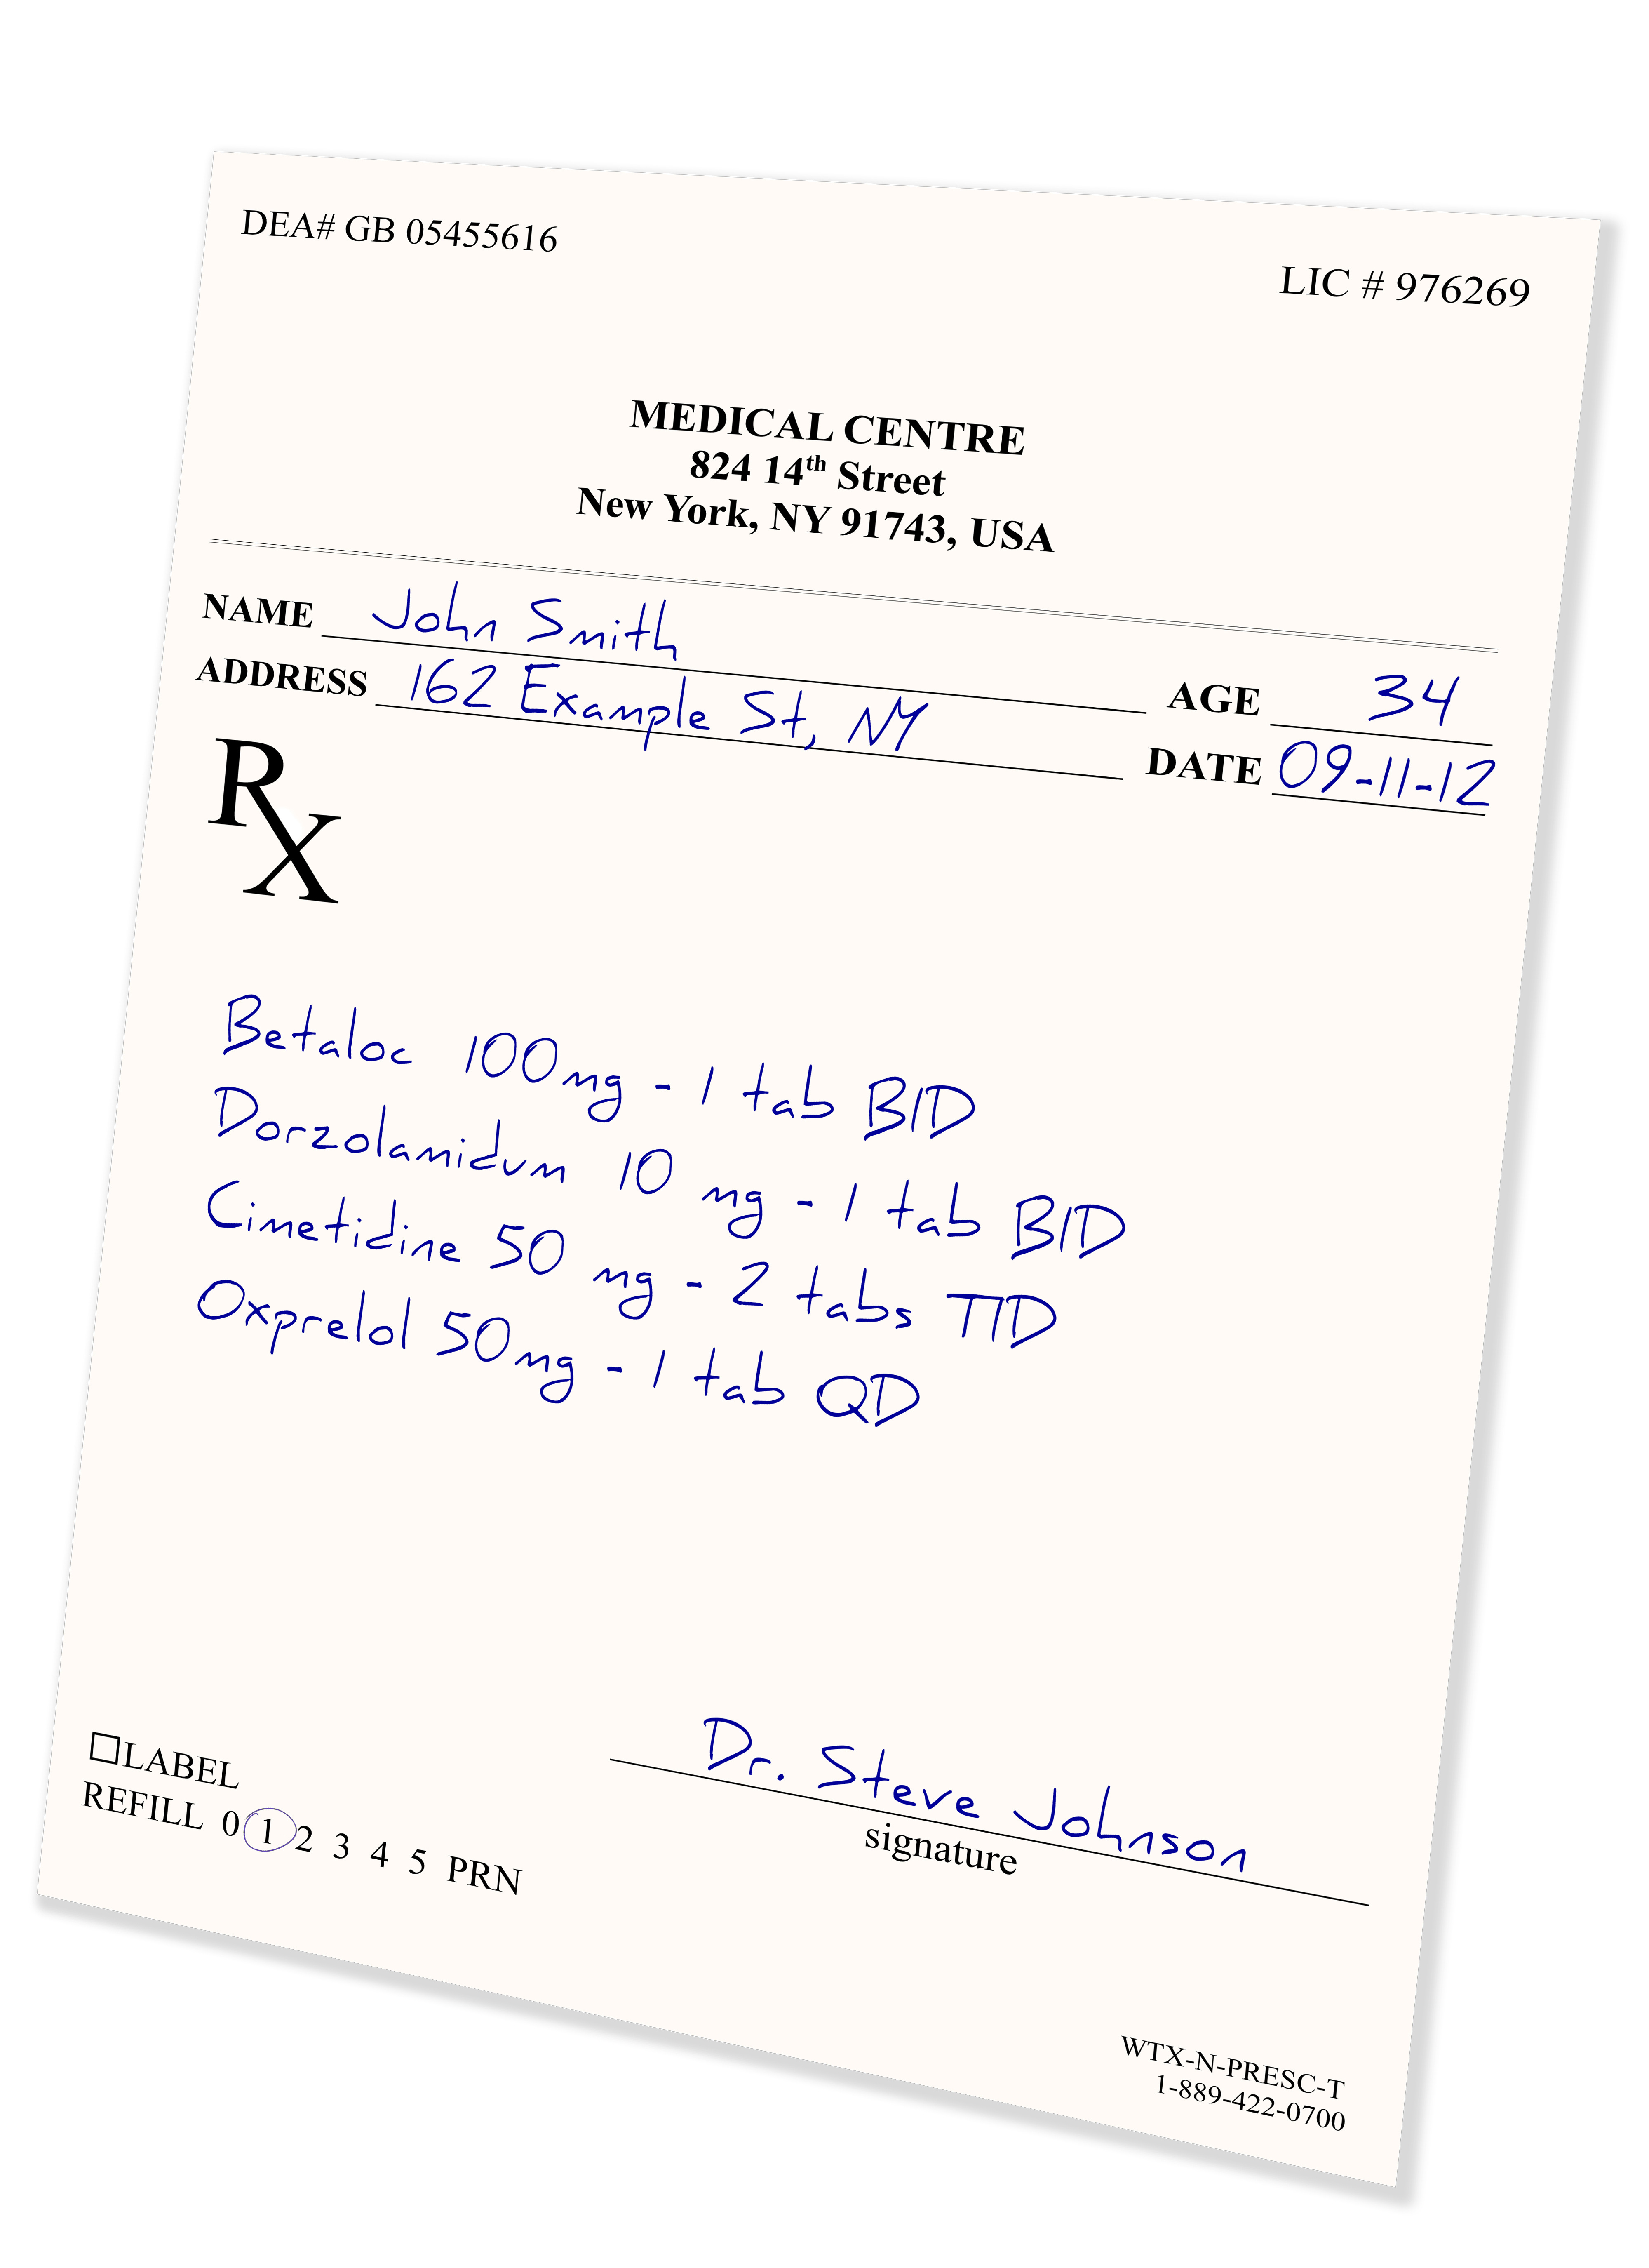 DEA# GB 05455616
LIC # 976269
MEDICAL CENTRE
824 14th Street
New York, NY 91743, USA
NAME John Smith
AGE 34
ADDRESS 162 Example St, NY
DATE 09-11-12
RX
Betaloc 100mg - 1 tab BID
Dorzolamidum 10 mg - 1 tab BID
Cimetidine 50 mg - 2 tabs TID
Oxprelol 50mg - 1 tab QD
Dr. Steve Johnson
signature
LABEL
REFILL 0 1 2 3 4 5 PRN
WTX-N-PRESC-T
1-889-422-0700